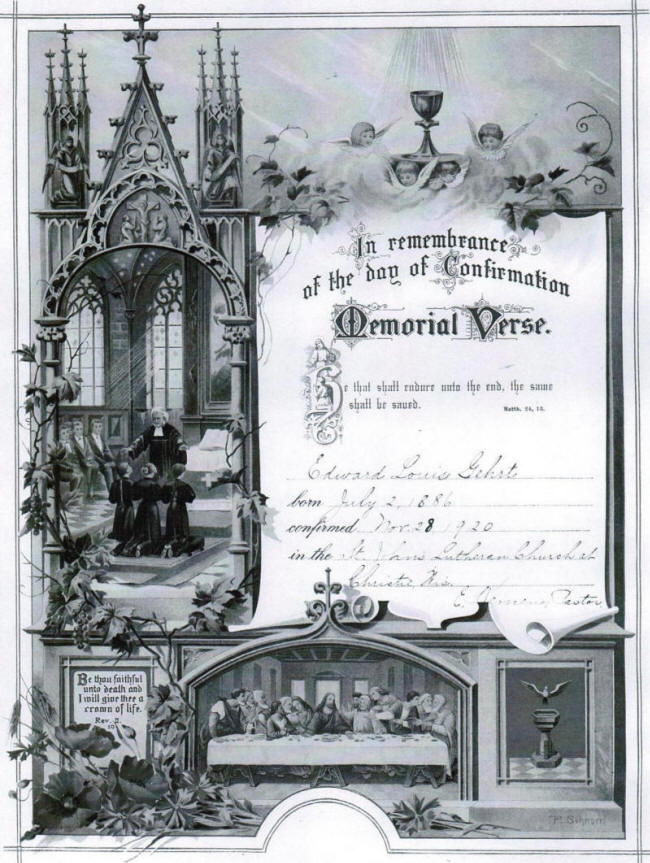 In remembrance
of the day of Confirmation
Memorial Verse.
He that shall endure unto the end, the same
shall be saved.
Matth. 24, 13.
Edward Louis Gehrt
born July 2, 1886
confirmed Nov. 28 1920
in the St. Johns Lutheran Church at
Christie, Wis.
E. Pastor
Be thou faithful
unto death and
I will give thee a
crown of life.
Rev. 2.
10